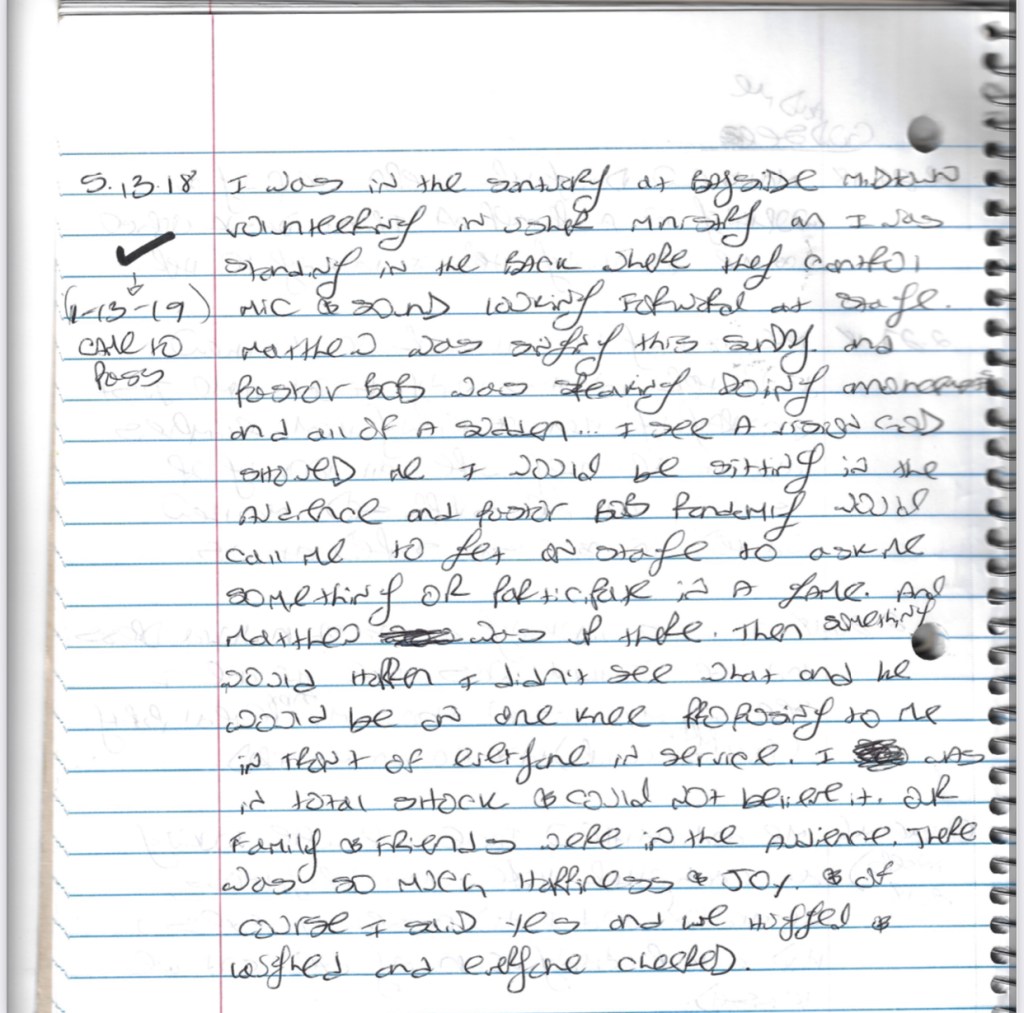 5.13.18 I was in the santuary at Bayside Midtown
volunteering in usher ministry an I was
✓ standing in the BACK where they control
(1-13-19) Mic & sound looking Forward at stage.
CAME to Matthew was singing this sunday and
Pass Pastor Bob was speaking Doing
and all of A sudden... I see A vision GOD
showed me I would be sitting in the
Audience and pastor Bob randomly would
call me to get on stage to ask me
something OR participate in A game. And
Matthew was up there. Then something
would Happen I didn't see what and he
would be on one knee proposing to me
in front of everyone in service. I was
in total shock & could not believe it. OUR
Family & Friends were in the Audience. There
was so much Happiness & Joy. & of
course I said yes and we hugged &
laughed and everyone cheered.